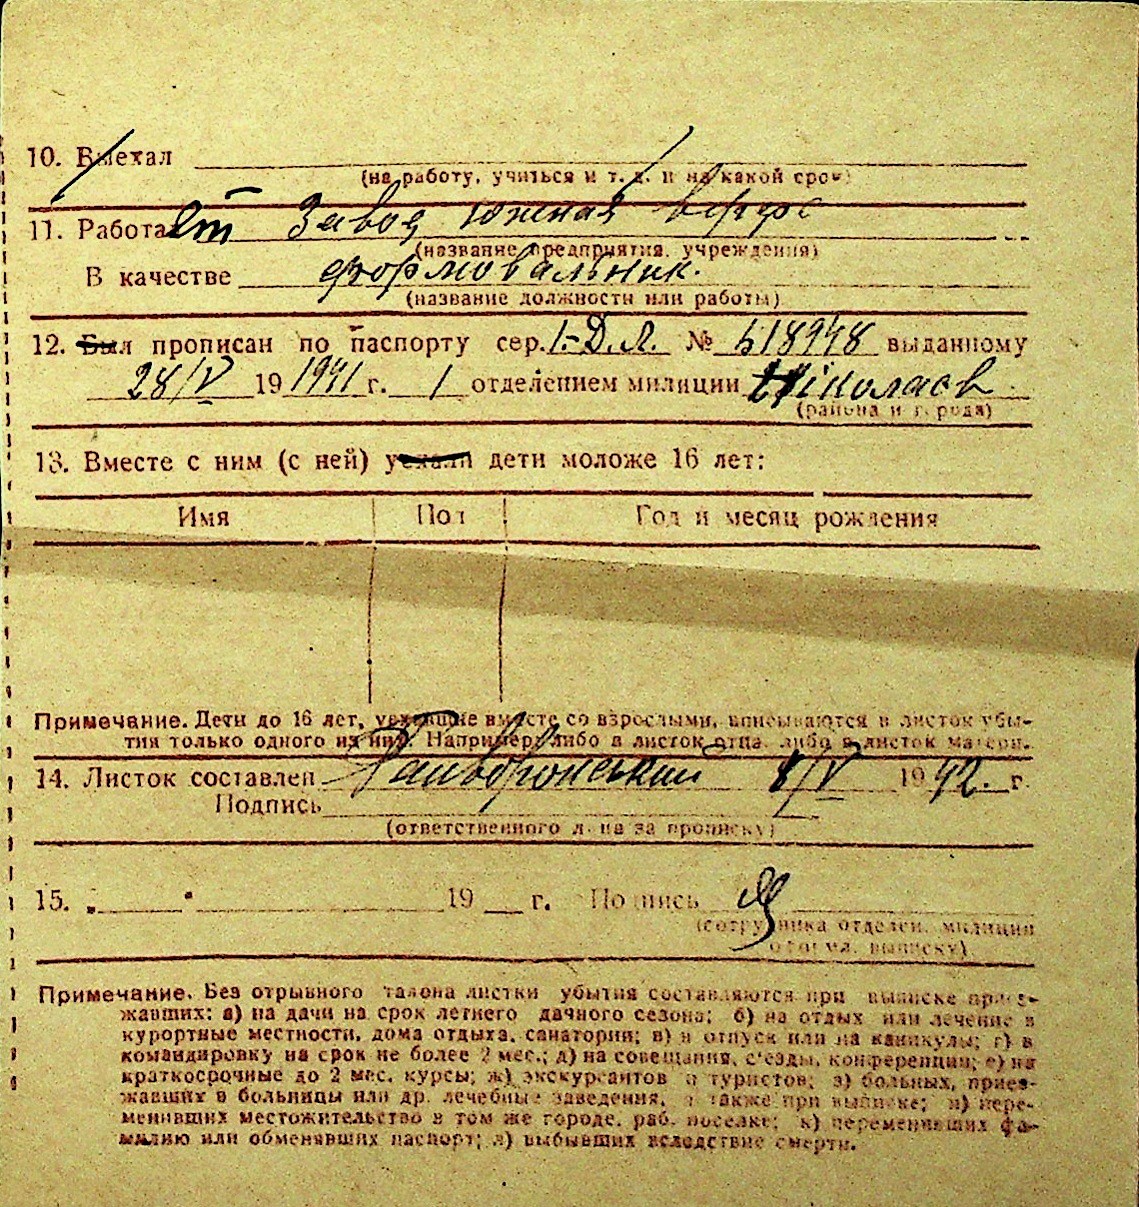 10. Выехал
(на работу, учиться и т. д. и на какой срок)
11. Работает Завод южная верфь
(название предприятия, учреждения)
В качестве формовальник.
(название должности или работы)
12. Был прописан по паспорту сер. I-Д.Л. № 518948 выданному
28/V 19 1941 г. 1 отделением милиции Ніколаєв
(района и города)
13. Вместе с ним (с ней) уехали дети моложе 16 лет:
Имя Пол Год и месяц рождения
Примечание. Дети до 16 лет, уехавшие вместе со взрослыми, вписываются в листок убы-
тия только одного из них. Например, либо в листок отца, либо в листок матери.
14. Листок составлен 8/V 1942. г.
Подпись
(ответственного лица за прописку)
15. „ " 19 г. Подпись
(сотрудника отделен. милиции
выписку)
Примечание. Без отрывного талона листки убытия составляются при выписке приез-
жавших: а) на дачи на срок летнего дачного сезона; б) на отдых или лечение в
курортные местности, дома отдыха, санатории; в) в отпуск или на каникулы; г) в
командировку на срок не более 2 мес.; д) на совещания, съезды, конференции; е) на
краткосрочные до 2 мес. курсы; ж) экскурсантов и туристов; з) больных, приез-
жавших в больницы или др. лечебные заведения, а также при выписке; и) пере-
менивших местожительство в том же городе, раб. поселке; к) переменивших фа-
милию или обменявших паспорт; л) выбывших вследствие смерти.